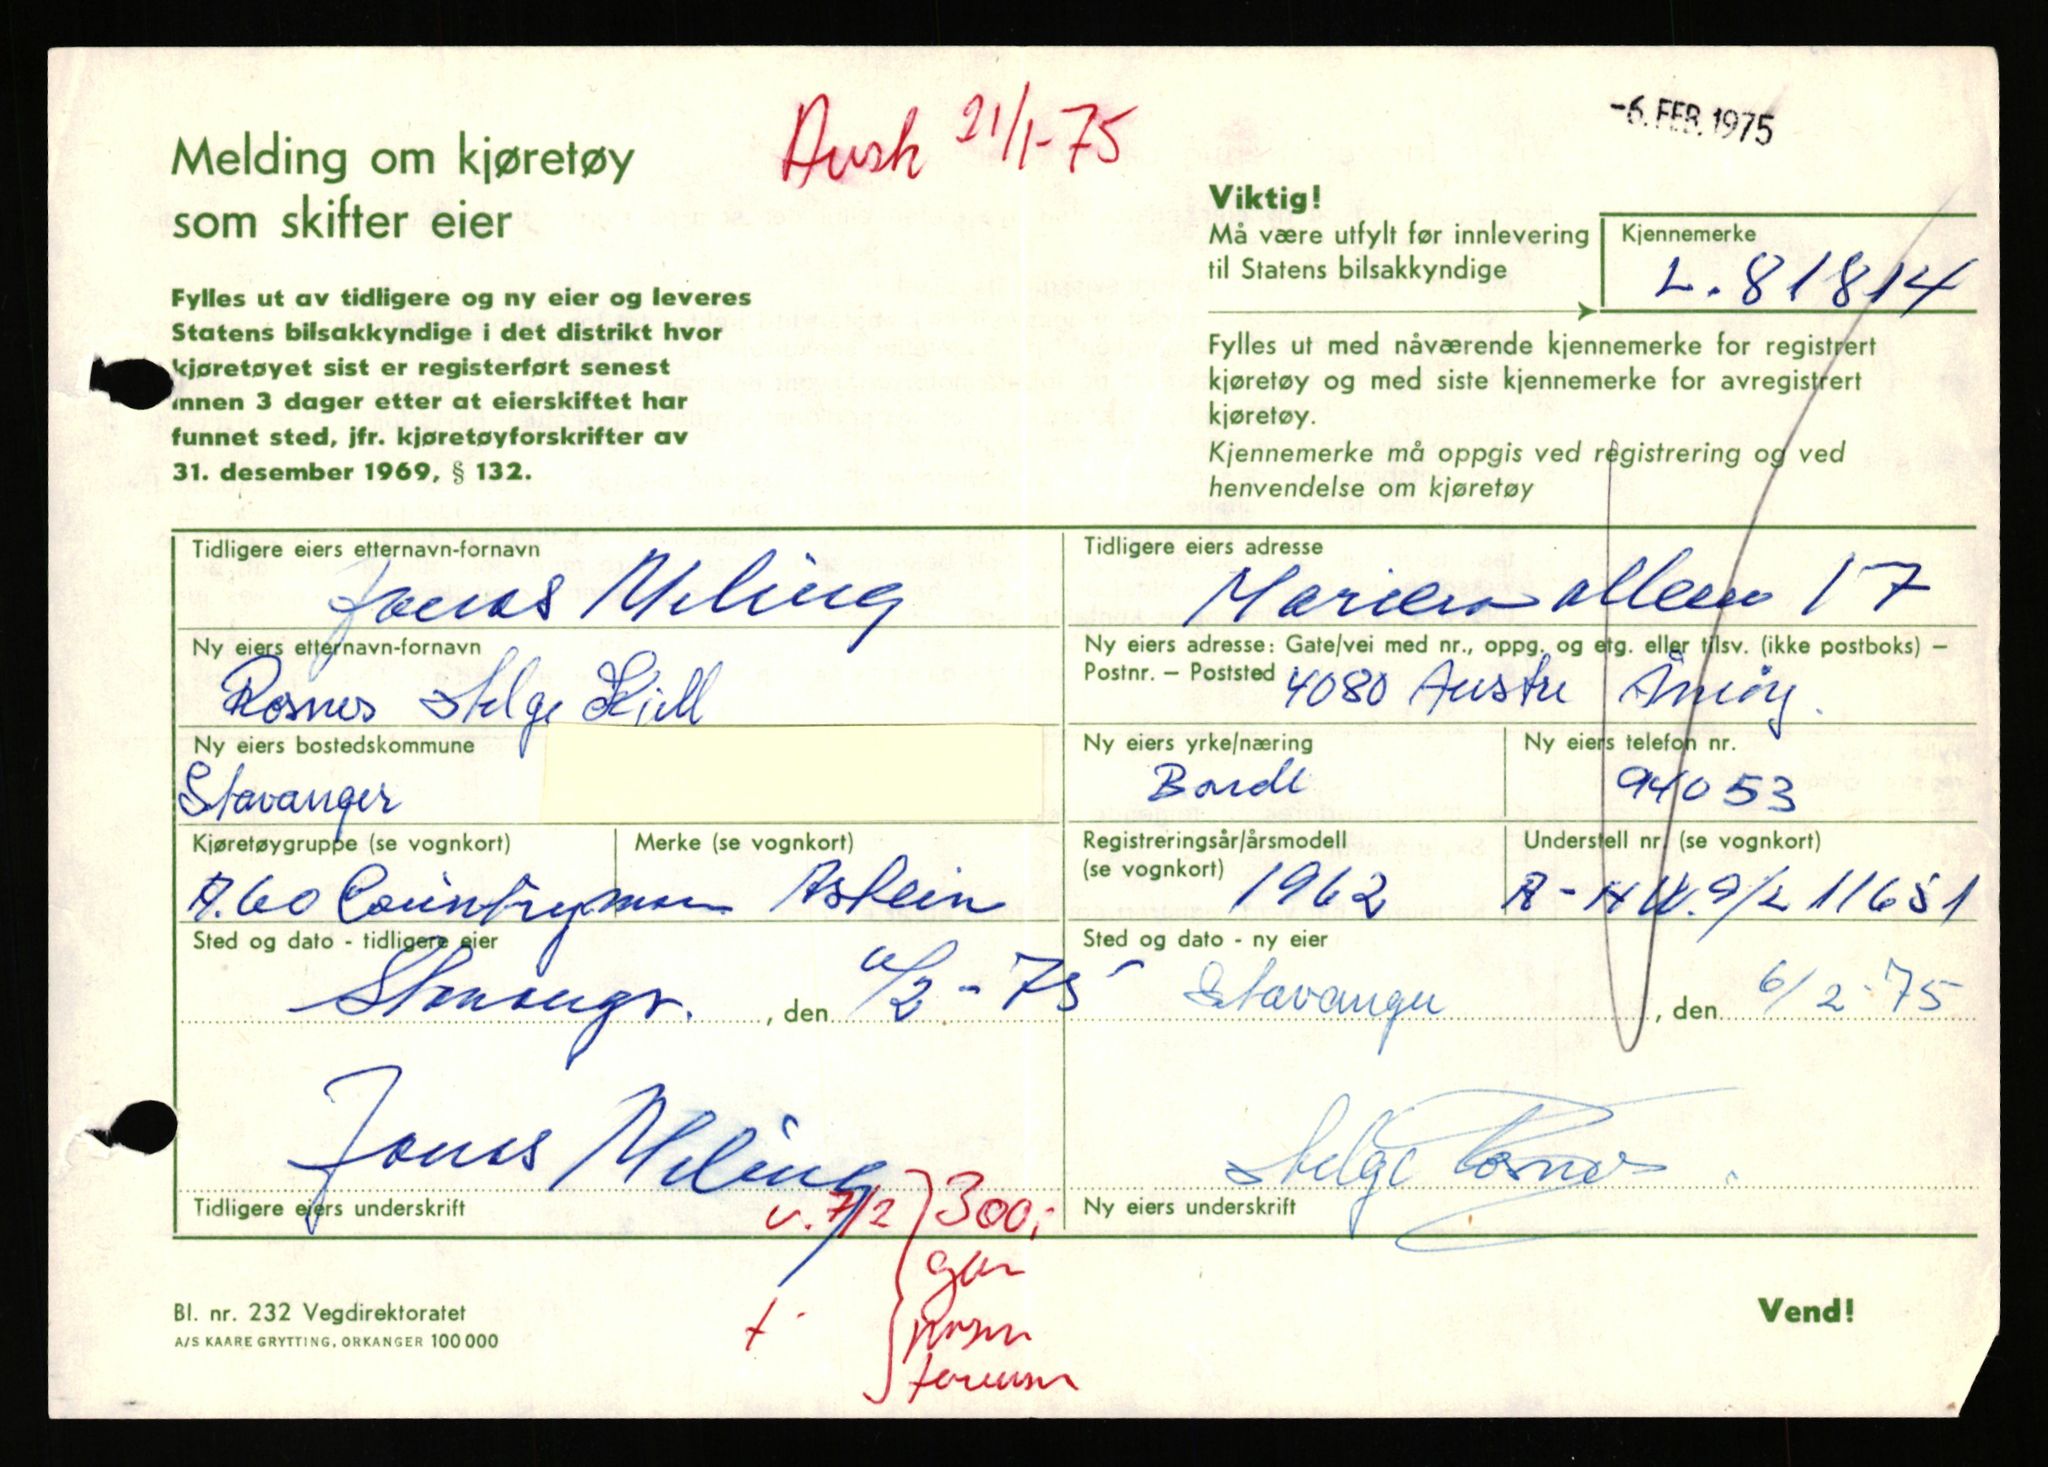 Avsk 21/1-75
-6. FEB. 1975
Melding om kjøretøy
som skifter eier
Fylles ut av tidligere og ny eier og leveres
Statens bilsakkyndige i det distrikt hvor
kjøretøyet sist er registerført senest
innen 3 dager etter at eierskiftet har
funnet sted, jfr. kjøretøyforskrifter av
31. desember 1969, § 132.
Viktig!
Må være utfylt før innlevering
til Statens bilsakkyndige
Kjennemerke
L. 81814
Fylles ut med nåværende kjennemerke for registrert
kjøretøy og med siste kjennemerke for avregistrert
kjøretøy.
Kjennemerke må oppgis ved registrering og ved
henvendelse om kjøretøy
Tidligere eiers etternavn-fornavn
Jonas Meling
Tidligere eiers adresse
17
Ny eiers etternavn-fornavn
Rosnes Helge Kjell
Ny eiers adresse: Gate/vei med nr., oppg. og etg. eller tilsv. (ikke postboks) –
Postnr. – Poststed 4080 Austre Åmøy.
Ny eiers bostedskommune
Stavanger
Ny eiers yrke/næring
Ny eiers telefon nr.
94053
Kjøretøygruppe (se vognkort)
A.60 Countryman
Merke (se vognkort)
Registreringsår/årsmodell
(se vognkort) 1962
Understell nr. (se vognkort)
Sted og dato - tidligere eier
, den 6/2 - 75
Sted og dato - ny eier
Stavanger, den 6/2-75
Jonas Meling
Tidligere eiers underskrift
Helge Rosnes.
Ny eiers underskrift
v. 7/2 300,-
Bl. nr. 232 Vegdirektoratet
A/S KAARE GRYTTING, ORKANGER 100 000
Vend!